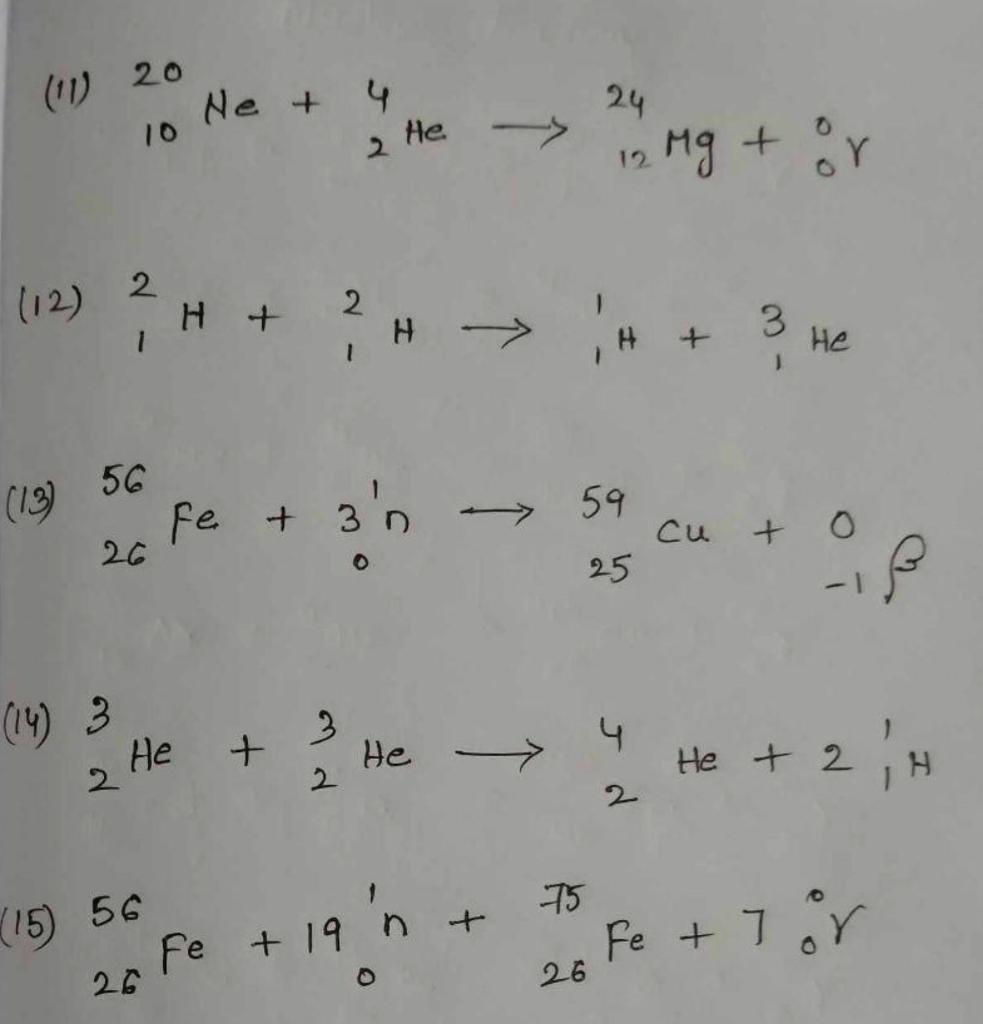 (11) ²⁰₁₀Ne + ⁴₂He → ²⁴₁₂Mg + ⁰₀γ
(12) ²₁H + ²₁H → ¹₁H + ³₁He
(13) ⁵⁶₂₆Fe + 3 ¹₀n → ⁵⁹₂₅Cu + ⁰₋₁β
(14) ³₂He + ³₂He → ⁴₂He + 2 ¹₁H
(15) ⁵⁶₂₆Fe + 19 ¹₀n + ⁷⁵₂₆Fe + 7 ⁰₀γ